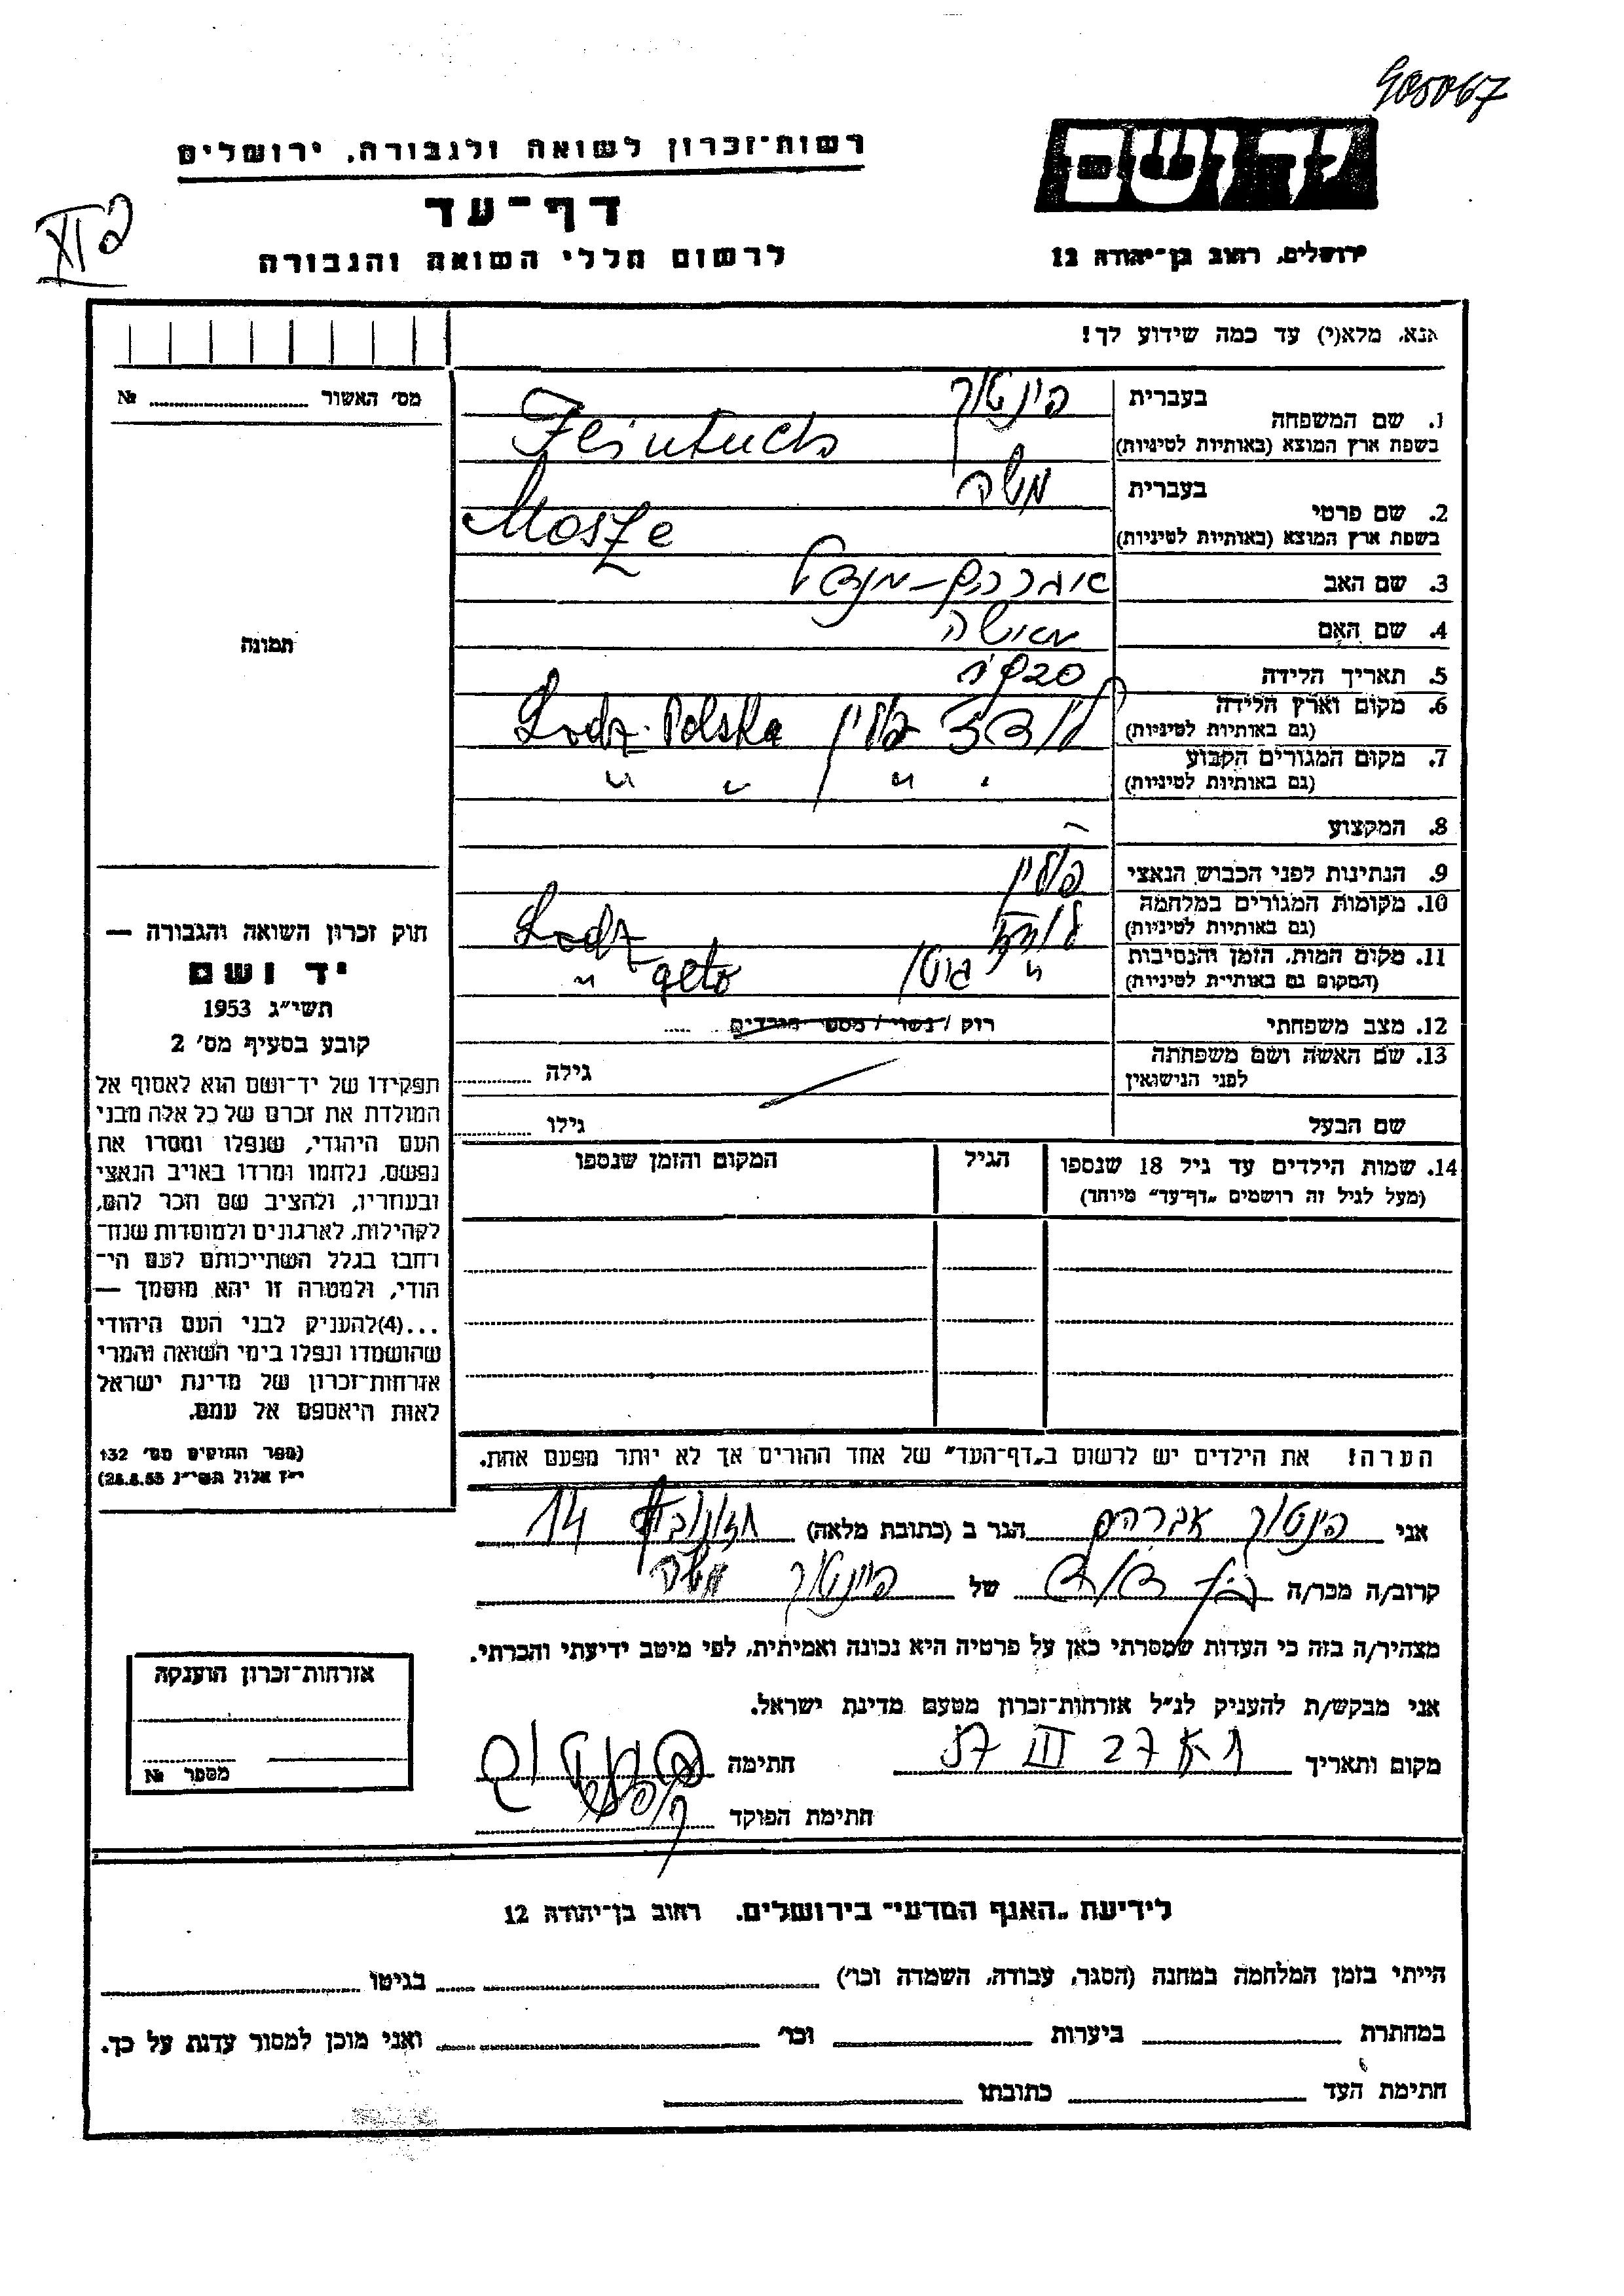 905067
יד ושם
רשות־זכרון לשואה ולגבורה, ירושלים
דף־עד
לרשום חללי השואה והגבורה
ירושלים, רחוב בן־יהודה 12
אנא, מלא(י) עד כמה שידוע לך!
מס׳ האשור № ........
תמונה
1. שם המשפחה
בעברית פינטוך
בשפת ארץ המוצא (באותיות לטיניות) Feintuch
2. שם פרטי
בעברית משה
בשפת ארץ המוצא (באותיות לטיניות) Mosze
3. שם האב אברהם–מנדל
4. שם האם
5. תאריך הלידה
6. מקום וארץ הלידה
(גם באותיות לטיניות) לודז׳ פולין Lodz. Polska
7. מקום המגורים הקבוע
(גם באותיות לטיניות) " " " "
8. המקצוע –
9. הנתינות לפני הכבוש הנאצי פולין
10. מקומות המגורים במלחמה
(גם באותיות לטיניות) לודז Lodz
11. מקום המות, הזמן והנסיבות
(המקום גם באותיות לטיניות) " גטו geto "
12. מצב משפחתי רוק / נשוי / מספר הילדים
13. שם האשה ושם משפחתה
לפני הנישואין
גילה
שם הבעל
גילו
14. שמות הילדים עד גיל 18 שנספו
(מעל לגיל זה רושמים „דף־עד" מיוחד)
הגיל
המקום והזמן שנספו
הערה! את הילדים יש לרשום ב„דף־העד" של אחד ההורים אך לא יותר מפעם אחת.
חוק זכרון השואה והגבורה —
יד ושם
תשי״ג 1953
קובע בסעיף מס׳ 2
תפקידו של יד־ושם הוא לאסוף אל
המולדת את זכרם של כל אלה מבני
העם היהודי, שנפלו ומסרו את
נפשם, נלחמו ומרדו באויב הנאצי
ובעוזריו, ולהציב שם וזכר להם,
לקהילות, לארגונים ולמוסדות שנח־
רחבו בגלל השתייכותם לעם הי־
הודי, ולמטרה זו יהא מוסמך —
...(4)להעניק לבני העם היהודי
שהושמדו ונפלו בימי השואה והמרי
אזרחות־זכרון של מדינת ישראל
לאות היאספם אל עמם.
(ספר החוקים מס׳ 132
י״ז אלול תשי״ג 28.8.53)
אני פינטוך אברהם הגר ב (כתובת מלאה) 14
קרוב/ה מכר/ה בן דוד של פיינטוך משה
מצהיר/ה בזה כי העדות שמסרתי כאן על פרטיה היא נכונה ואמיתית, לפי מיטב ידיעתי והכרתי.
אני מבקש/ת להעניק לנ״ל אזרחות־זכרון מטעם מדינת ישראל.
מקום ותאריך ת״א 27 III 57 חתימה
חתימת הפוקד
אזרחות־זכרון הוענקה
מספר №
לידיעת „האגף המדעי" בירושלים. רחוב בן־יהודה 12
הייתי בזמן המלחמה במחנה (הסגר, עבודה, השמדה וכו׳) בגיטו
במחתרת ביערות וכו׳ ואני מוכן למסור עדות על כך.
חתימת העד כתובתו